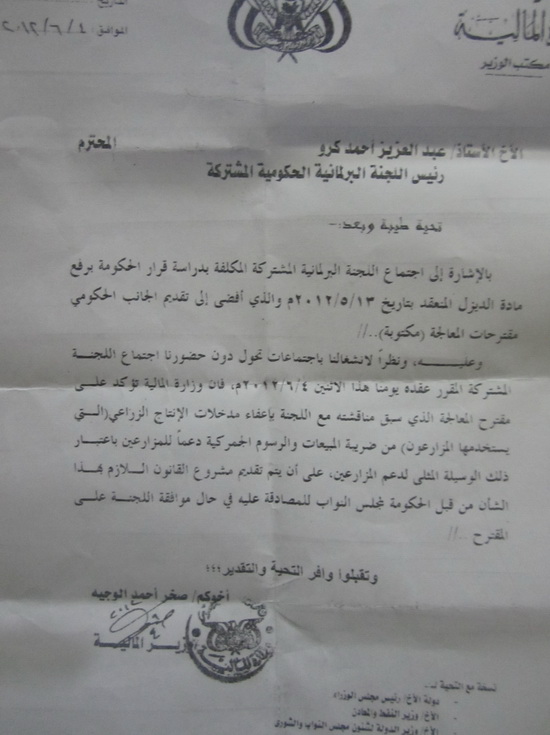 المالية
مكتب الوزير
الموافق: ٢٠١٢/٦/٤
الأخ الأستاذ/ عبد العزيز أحمد كرو المحترم
رئيس اللجنة البرلمانية الحكومية المشتركة
تحية طيبة وبعد:-
بالإشارة إلى اجتماع اللجنة البرلمانية المشتركة المكلفة بدراسة قرار الحكومة برفع
مادة الديزل المنعقد بتاريخ ٢٠١٢/٥/١٣م والذي أفضى إلى تقديم الجانب الحكومي
مقترحات المعالجة (مكتوبة)..//
وعليـــه، ونظراً لانشغالنا باجتماعات تحول دون حضورنا اجتماع اللجنة
المشتركة المقرر عقده يومنا هذا الاثنين ٢٠١٢/٦/٤م، فان وزارة المالية تؤكد على
مقترح المعالجة الذي سبق مناقشته مع اللجنة بإعفاء مدخلات الإنتاج الزراعي(التي
يستخدمها المزارعون) من ضريبة المبيعات والرسوم الجمركية دعماً للمزارعين باعتبار
ذلك الوسيلة المثلى لدعم المزارعين، على أن يتم تقديم مشروع القانون اللازم بهذا
الشأن من قبل الحكومة لمجلس النواب للمصادقة عليه في حال موافقة اللجنة على
المقترح ..//
وتقبلوا وافر التحية والتقدير؛؛؛
أخوكم/ صخر أحمد الوجيه
وزير المالية
نسخة مع التحية لـ:-
- دولة الأخ/ رئيس مجلس الوزراء
- الأخ/ وزير النفط والمعادن
- الأخ/ وزير الدولة لشئون مجلس النواب والشورى